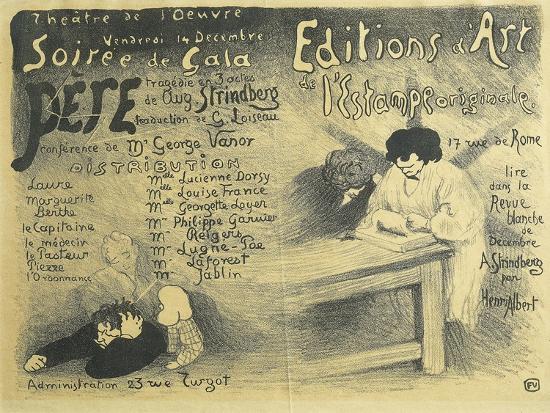 Théâtre de l'Oeuvre
Vendredi 14 Décembre
Soirée de Gala
PÈRE
tragédie en 3 actes
de Aug. Strindberg
traduction de G. Loiseau
conférence de Mr George Vanor
DISTRIBUTION
Laure Mlle Lucienne Dorsy
Marguerite Mlle Louise France
Berthe Mlle Georgette Loyer
le Capitaine Mr Philippe Garnier
le médecin Mr Reigers
le Pasteur Mr Lugné-Poe
Pierre Mr Laforest
l'Ordonnance Mr Jablin
Administration 23 rue Turgot
Editions d'Art
de l'Estampe originale.
17 rue de Rome
lire
dans la
Revue
blanche
de
Décembre
A. Strindberg
par
Henri Albert
FV